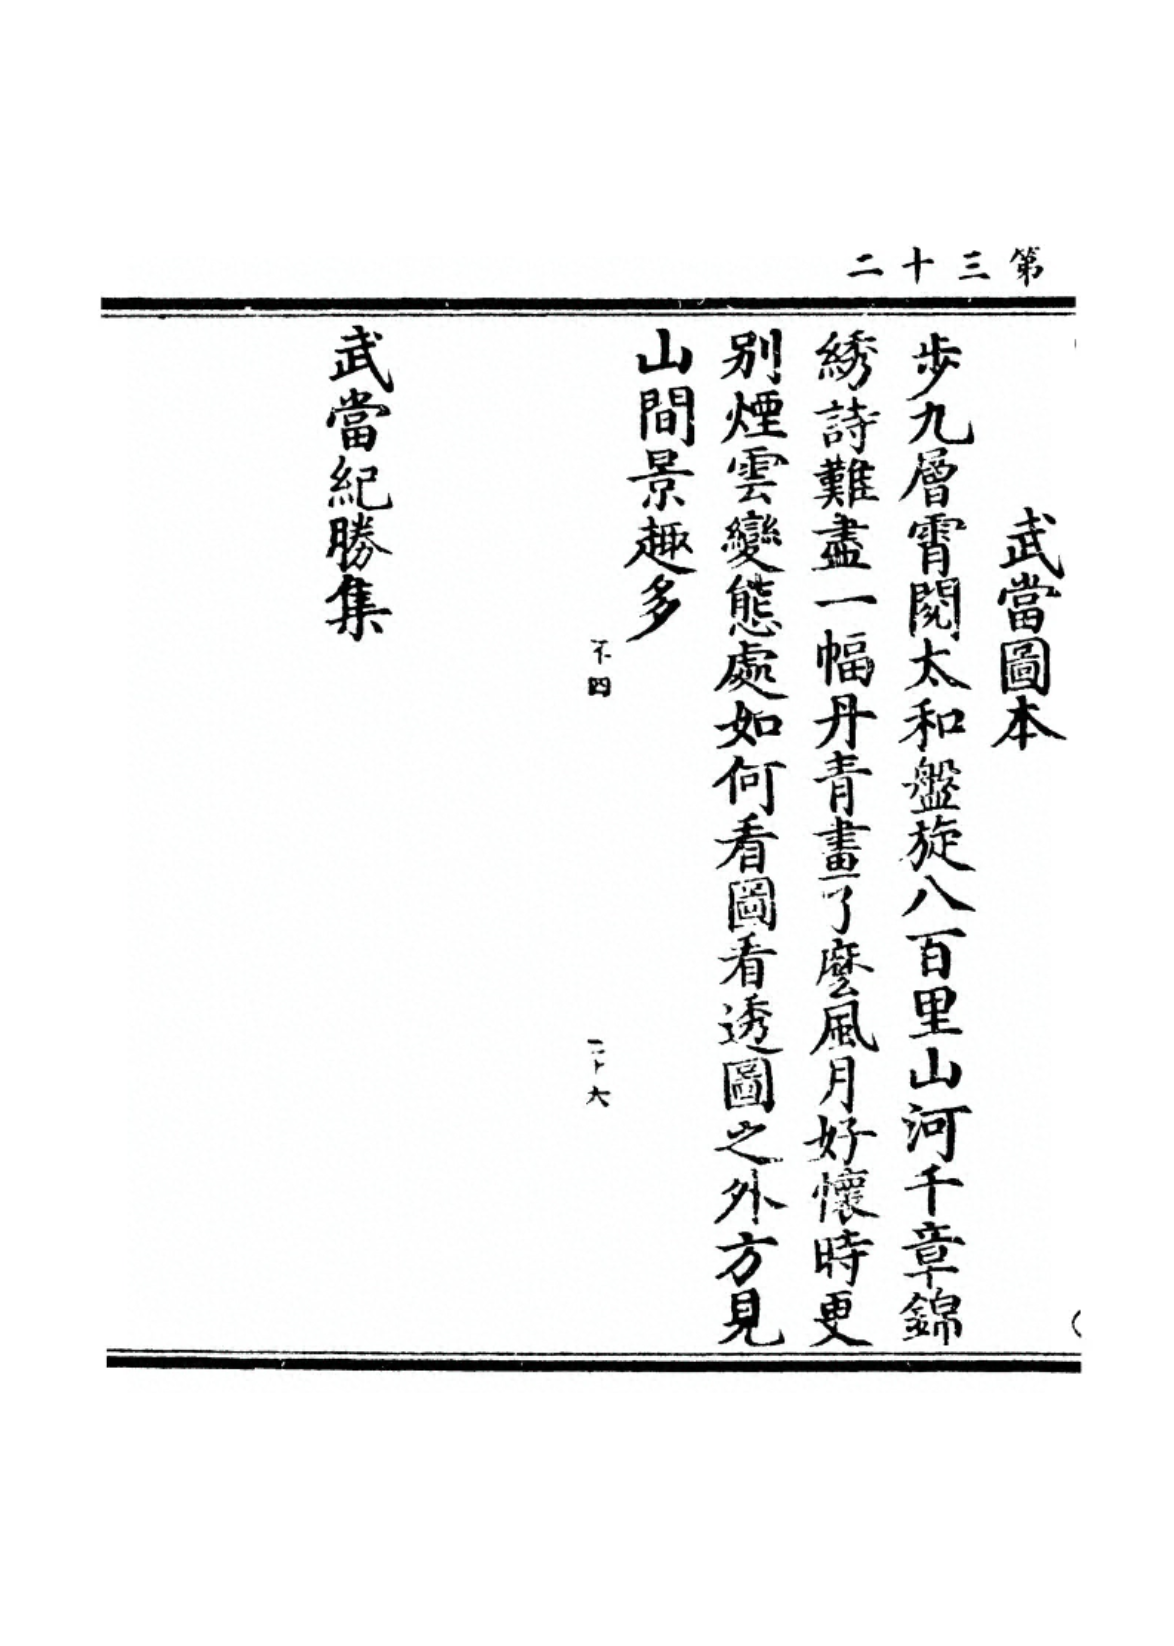 第三十二
武當圖本
步九層霄閱太和盤旋八百里山河千章錦
綉詩難盡一幅丹青畫了麼風月好懷時更
別煙雲變態處如何看圖看透圖之外方見
山間景趣多
不四
二十六
武當紀勝集